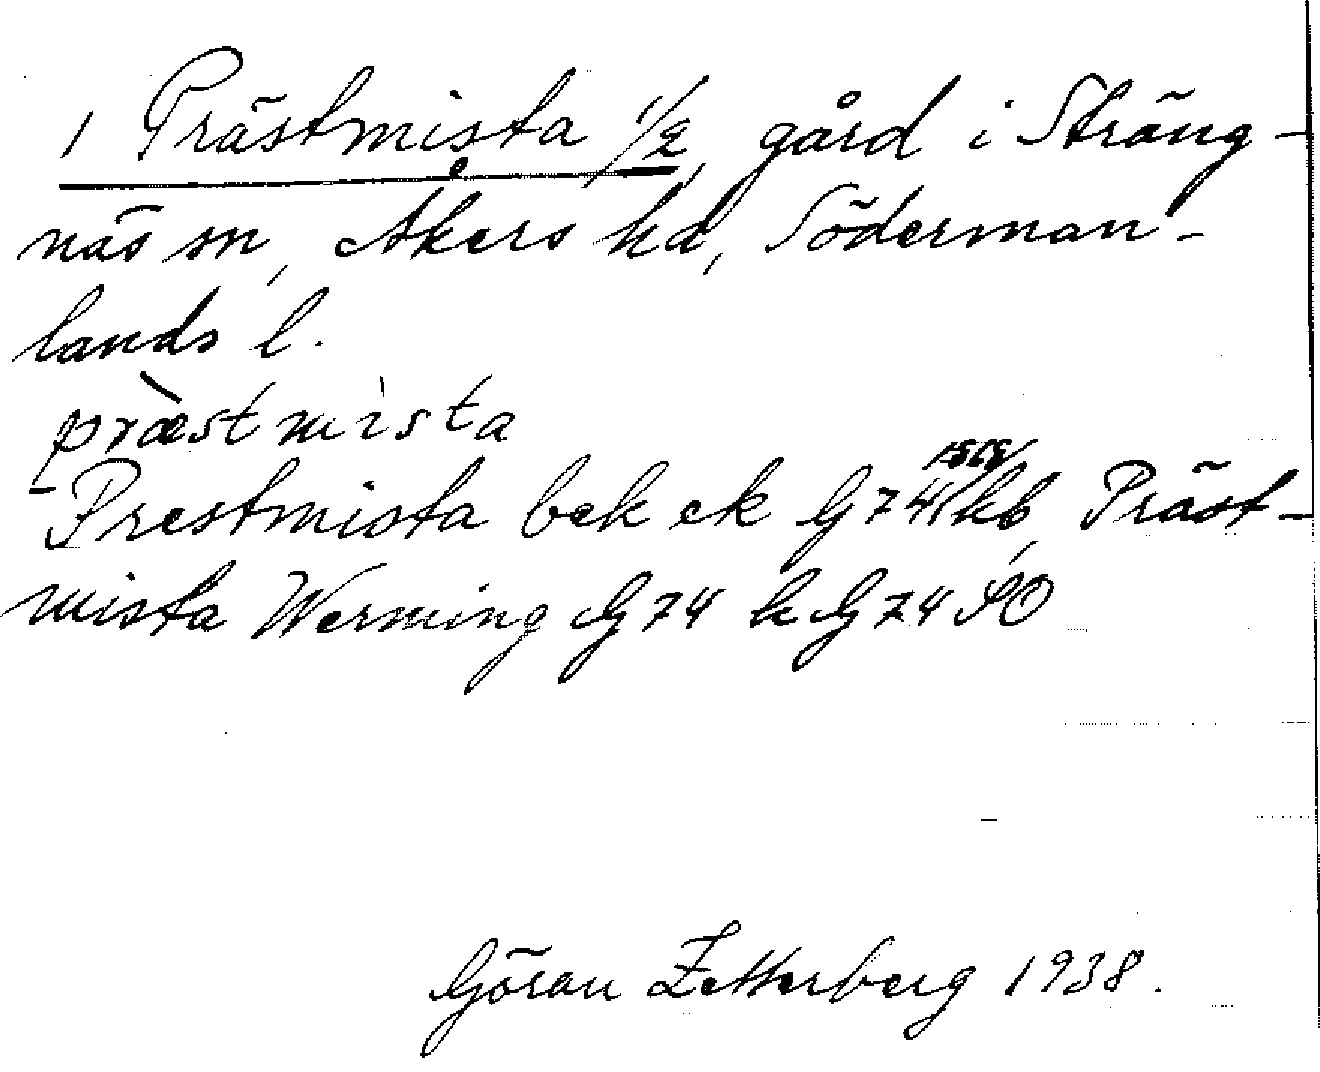 1 Prästmista 1/2, gård i Sträng-
näs sn, Åkers hd, Söderman-
lands l.
præ̀stmìsta
Prestmista bek ek G 74 kb, Präst-
mista Werming G 74 k G 74 SO
Göran Zetterberg 1938.